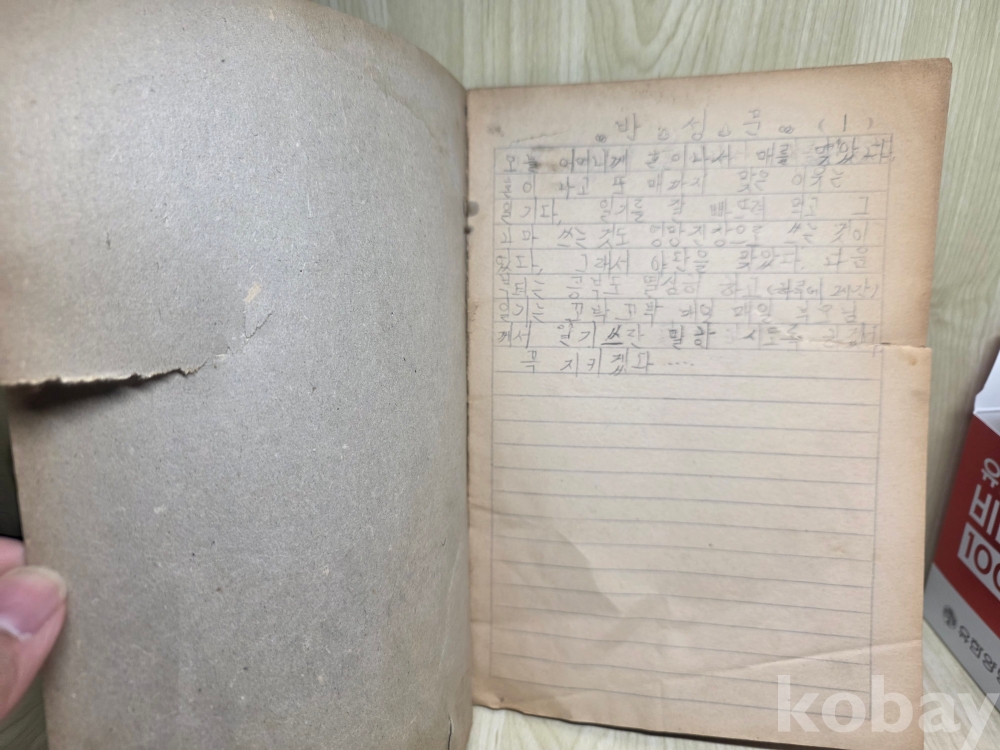 반 성 문 (1)
오늘 어머니께 매를 맞았다.
맞은 이유는
일기다. 일기를 잘 빼먹고 그
쓰는 것도 엉망진창으로 쓰는 것이
었다. 그래서 야단을 맞았다. 다음
부터는 공부도 열심히 하고
일기는 꼬박꼬박 매일 매일 부모님
께서 일기 쓰란 말씀
꼭 지키겠다 ....
유
비
100
유한양
kobay